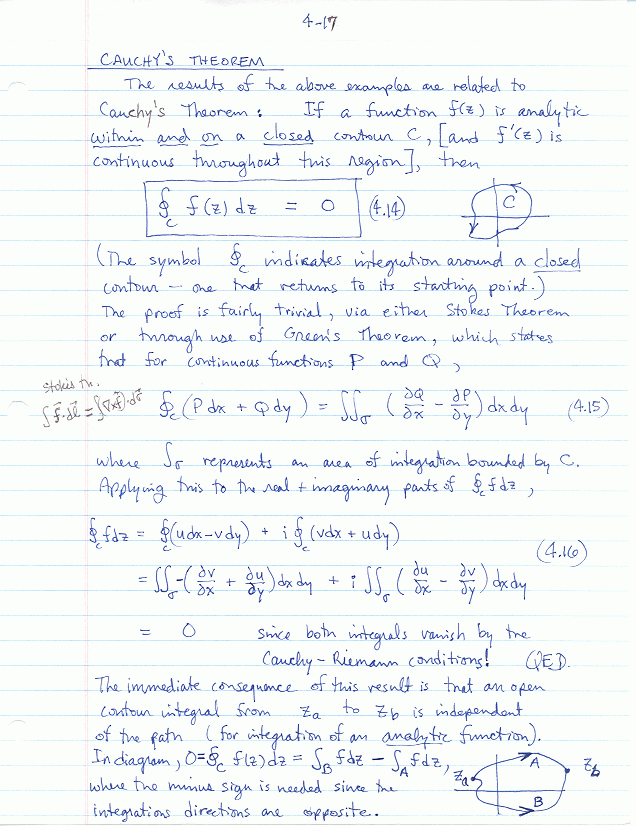 4-17
CAUCHY'S THEOREM
The results of the above examples are related to
Cauchy's Theorem: If a function f(z) is analytic
within and on a closed contour C, [and f'(z) is
continuous throughout this region], then
∮_C f(z) dz = 0 (4.14)
C
(The symbol ∮_C indicates integration around a closed
contour — one that returns to its starting point.)
The proof is fairly trivial, via either Stokes Theorem
or through use of Green's Theorem, which states
that for continuous functions P and Q,
Stokes th.
∫f⃗·dl⃗ = ∫(∇×f⃗)·dσ⃗
∮_C (P dx + Q dy) = ∬_σ (∂Q/∂x − ∂P/∂y) dx dy (4.15)
where ∫_σ represents an area of integration bounded by C.
Applying this to the real + imaginary parts of ∮_C f dz,
∮_C f dz = ∮_C (u dx − v dy) + i ∮_C (v dx + u dy)
(4.16)
= ∬_σ −(∂v/∂x + ∂u/∂y) dx dy + i ∬_σ (∂u/∂x − ∂v/∂y) dx dy
= 0 since both integrals vanish by the
Cauchy-Riemann conditions! QED.
The immediate consequence of this result is that an open
contour integral from z_a to z_b is independent
of the path (for integration of an analytic function).
In diagram, 0 = ∮_C f(z) dz = ∫_B f dz − ∫_A f dz,
where the minus sign is needed since the
integrations directions are opposite.
z_a A z_b
B